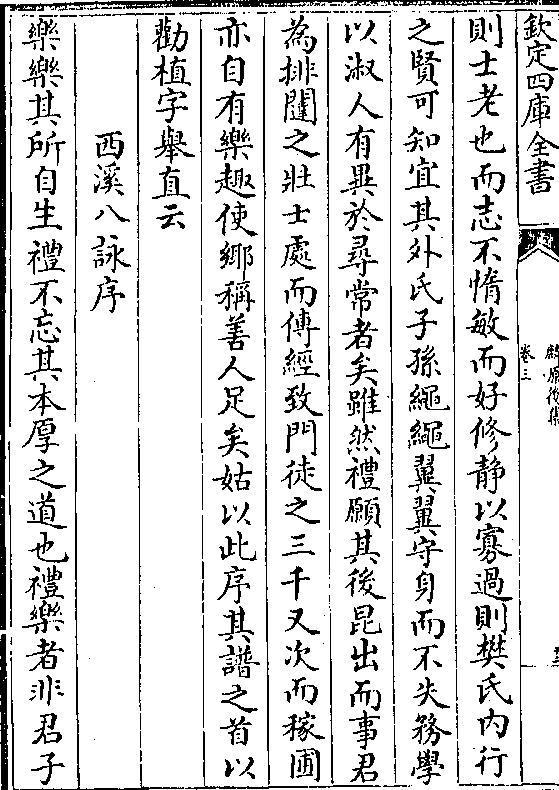 欽定四庫全書
麟原後集
卷三
則士老也而志不惰敏而好修静以寡過則樊氏内行
之賢可知宜其外氏子孫繩繩翼翼守身而不失務學
以淑人有異於尋常者矣雖然禮願其後昆出而事君
為排闥之壯士處而傳經致門徒之三千又次而稼圃
亦自有樂趣使鄉稱善人足矣姑以此序其譜之首以
勸植字舉直云
西溪八詠序
樂樂其所自生禮不忘其本厚之道也禮樂者非君子